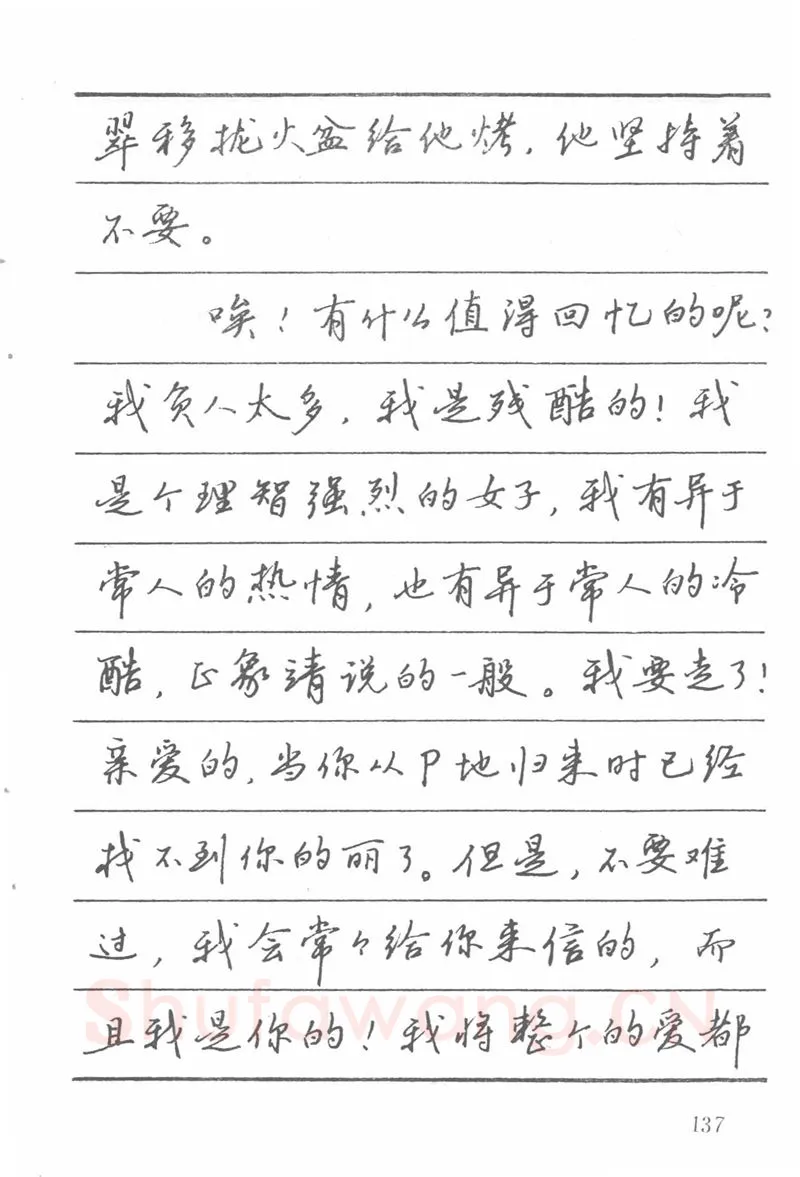 翠移拢火盆给他烤，他坚持着
不要。
唉！有什么值得回忆的呢？
我负人太多，我是残酷的！我
是个理智强烈的女子，我有异于
常人的热情，也有异于常人的冷
酷，正象靖说的一般。我要走了！
亲爱的，当你从P地归来时已经
找不到你的丽了。但是，不要难
过，我会常々给你来信的，而
且我是你的！我将整个的爱都
Shufawang.CN
137